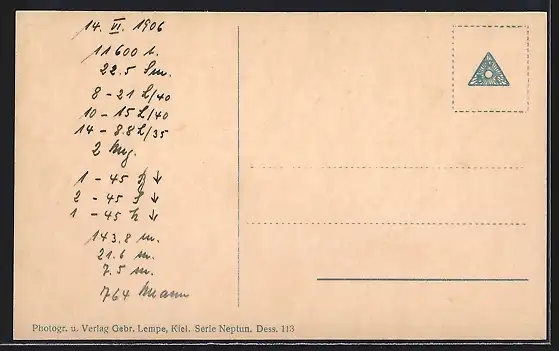 14. VI. 1906
11600 t.
22.5 Sm.
8 - 21 L/40
10 - 15 L/40
14 - 8.8 L/35
2 Mg.
1 - 45 ↓
2 - 45 S ↓
1 - 45 h ↓
143.8 m.
21.6 m.
7.5 m.
764 Mann
Photogr. u. Verlag Gebr. Lempe, Kiel. Serie Neptun. Dess. 113